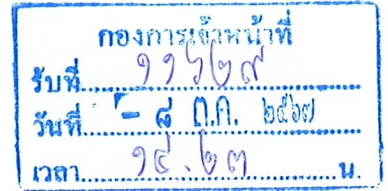 กองการเจ้าหน้าที่
รับที่ ๑๑๖๒๙
วันที่ - ๘ ต.ค. ๒๕๖๗
เวลา ๑๕.๒๓ น.